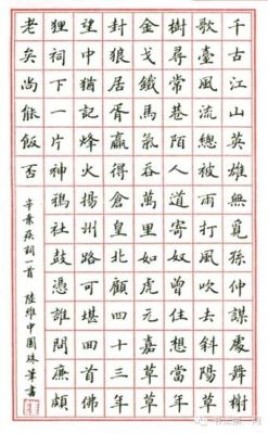 千古江山英雄無覓孫仲謀處舞榭
歌臺風流總被雨打風吹去斜陽草
樹尋常巷陌人道寄奴曾住想當年
金戈鐵馬氣吞萬里如虎元嘉草草
封狼居胥贏得倉皇北顧四十三年
望中猶記烽火揚州路可堪回首佛
狸祠下一片神鴉社鼓憑誰問廉頗
老矣尚能飯否 辛棄疾詞一首 陸維中圓珠筆書